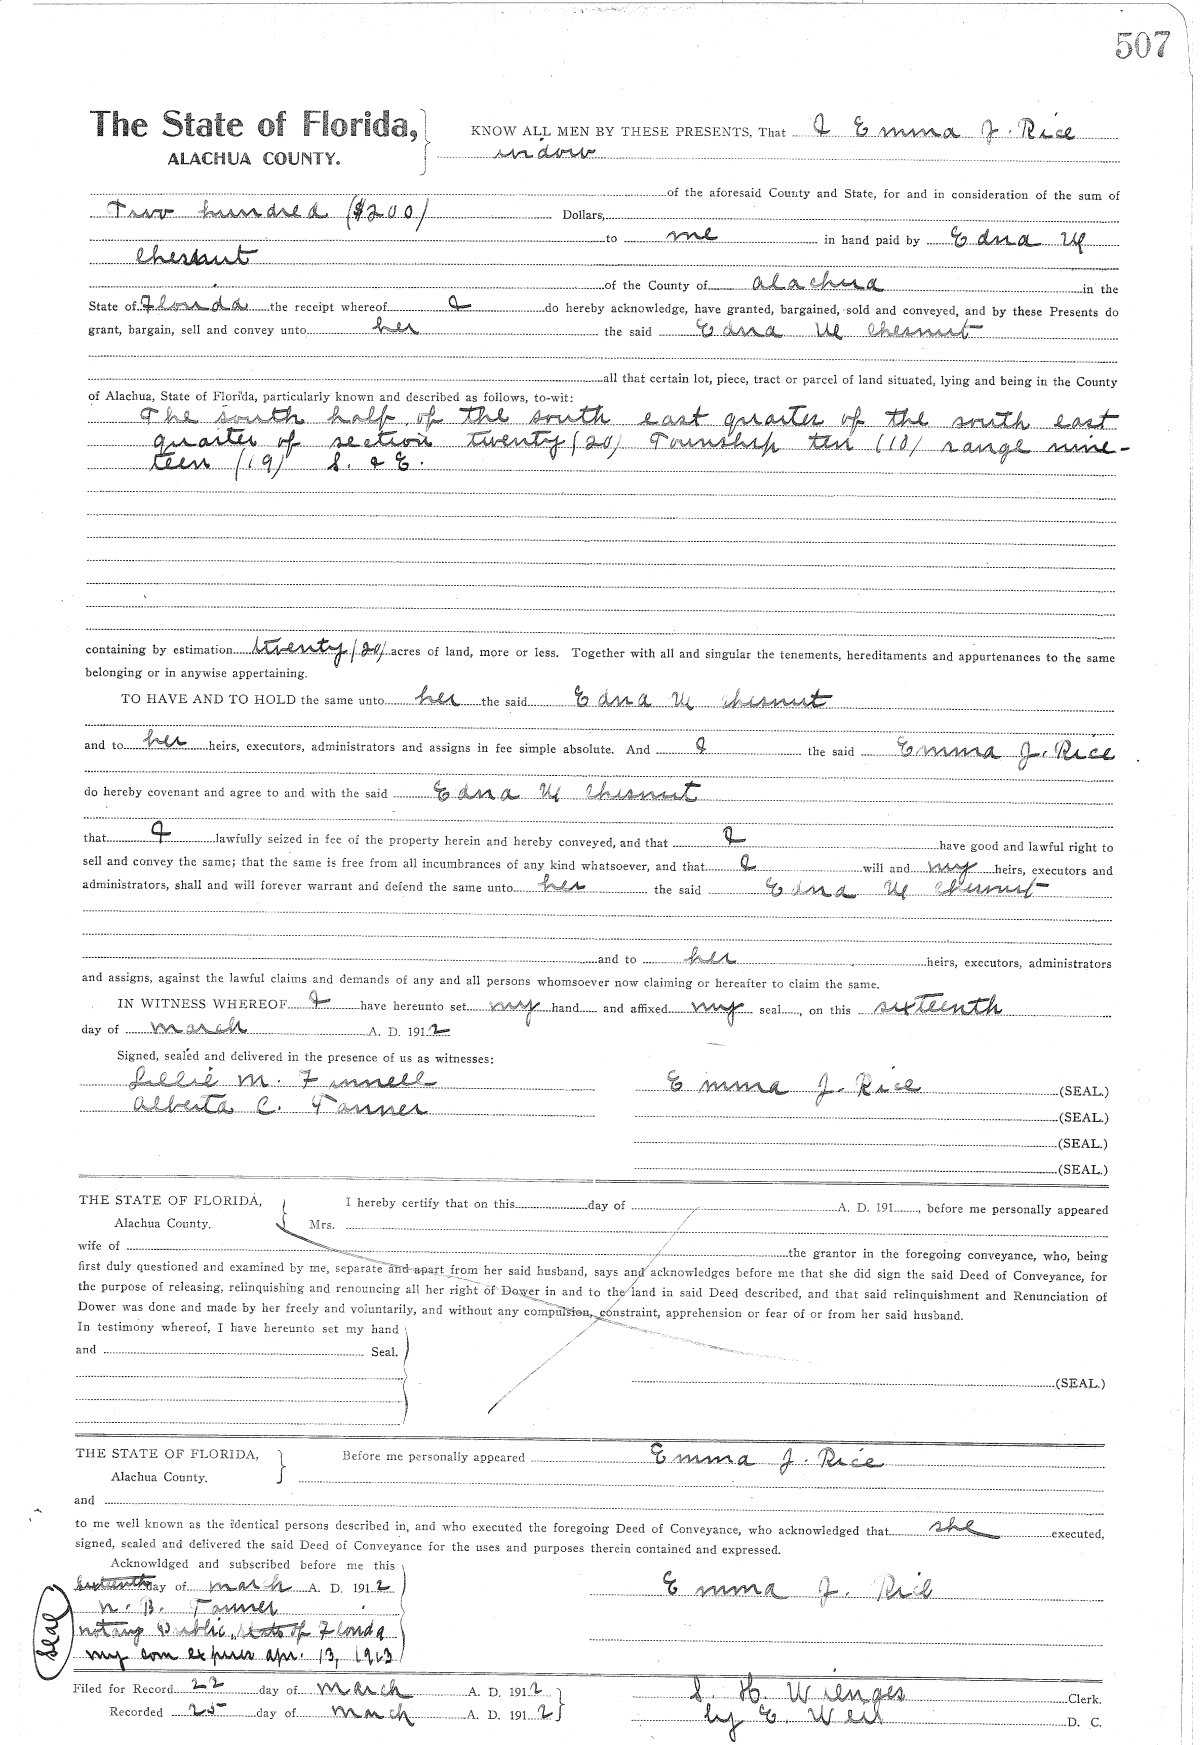 507
The State of Florida,
ALACHUA COUNTY.
KNOW ALL MEN BY THESE PRESENTS, That I Emma J. Rice
widow
of the aforesaid County and State, for and in consideration of the sum of
Two hundred ($200) Dollars,
to me in hand paid by Edna M
Chesnut
of the County of Alachua in the
State of Florida the receipt whereof I do hereby acknowledge, have granted, bargained, sold and conveyed, and by these Presents do
grant, bargain, sell and convey unto her the said Edna M Chesnut
all that certain lot, piece, tract or parcel of land situated, lying and being in the County
of Alachua, State of Florida, particularly known and described as follows, to-wit:
The south half of the south east quarter of the south east
quarter of section twenty (20) Township ten (10) range nine-
teen (19) S. & E.
containing by estimation twenty (20) acres of land, more or less. Together with all and singular the tenements, hereditaments and appurtenances to the same
belonging or in anywise appertaining.
TO HAVE AND TO HOLD the same unto her the said Edna M Chesnut
and to her heirs, executors, administrators and assigns in fee simple absolute. And I the said Emma J. Rice
do hereby covenant and agree to and with the said Edna M Chesnut
that I lawfully seized in fee of the property herein and hereby conveyed, and that I have good and lawful right to
sell and convey the same; that the same is free from all incumbrances of any kind whatsoever, and that I will and my heirs, executors and
administrators, shall and will forever warrant and defend the same unto her the said Edna M Chesnut
and to her heirs, executors, administrators
and assigns, against the lawful claims and demands of any and all persons whomsoever now claiming or hereafter to claim the same.
IN WITNESS WHEREOF I have hereunto set my hand and affixed my seal, on this sixteenth
day of March A. D. 1912
Signed, sealed and delivered in the presence of us as witnesses:
Lillie M. Finnell
Emma J. Rice (SEAL.)
Alberta C. Tanner
(SEAL.)
(SEAL.)
(SEAL.)
THE STATE OF FLORIDA,
Alachua County.
I hereby certify that on this day of A. D. 191 , before me personally appeared
Mrs.
wife of the grantor in the foregoing conveyance, who, being
first duly questioned and examined by me, separate and apart from her said husband, says and acknowledges before me that she did sign the said Deed of Conveyance, for
the purpose of releasing, relinquishing and renouncing all her right of Dower in and to the land in said Deed described, and that said relinquishment and Renunciation of
Dower was done and made by her freely and voluntarily, and without any compulsion, constraint, apprehension or fear of or from her said husband.
In testimony whereof, I have hereunto set my hand
and Seal.
(SEAL.)
THE STATE OF FLORIDA,
Alachua County.
Before me personally appeared Emma J. Rice
and
to me well known as the identical persons described in, and who executed the foregoing Deed of Conveyance, who acknowledged that she executed,
signed, sealed and delivered the said Deed of Conveyance for the uses and purposes therein contained and expressed.
Acknowldged and subscribed before me this
sixteenth day of March A. D. 1912
Emma J. Rice
N. B. Tanner
Notary Public, State of Florida
My com expires Apr. 13, 1913
Seal
Filed for Record 22 day of March A. D. 1912
S. H. Wienges Clerk.
Recorded 25 day of March A. D. 1912
by E. Weil D. C.